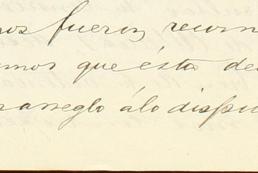 nos fueron recon
mos que ésta de
arreglo á lo dispu